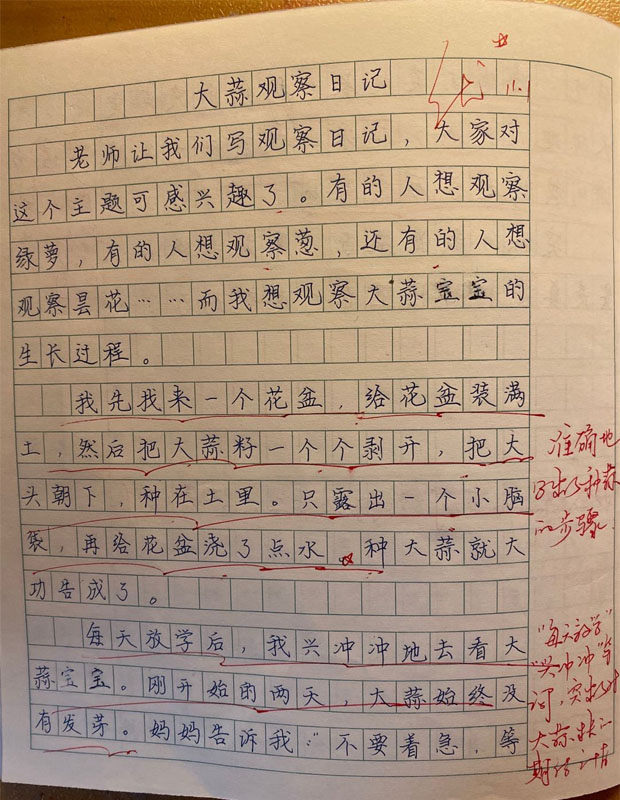 大蒜观察日记
11.1
老师让我们写观察日记，大家对
这个主题可感兴趣了。有的人想观察
绿萝，有的人想观察葱，还有的人想
观察昙花……而我想观察大蒜宝宝的
生长过程。
我先找来一个花盆，给花盆装满
土，然后把大蒜籽一个个剥开，把大
头朝下，种在土里。只露出一个小脑
袋，再给花盆浇了点水。种大蒜就大
功告成了。
每天放学后，我兴冲冲地去看大
蒜宝宝。刚开始的两天，大蒜始终没
有发芽。妈妈告诉我："不要着急，等
准确地
写出了种蒜
的步骤
"每天放学"
"兴冲冲"等
词，突出了对
大蒜
期待之情